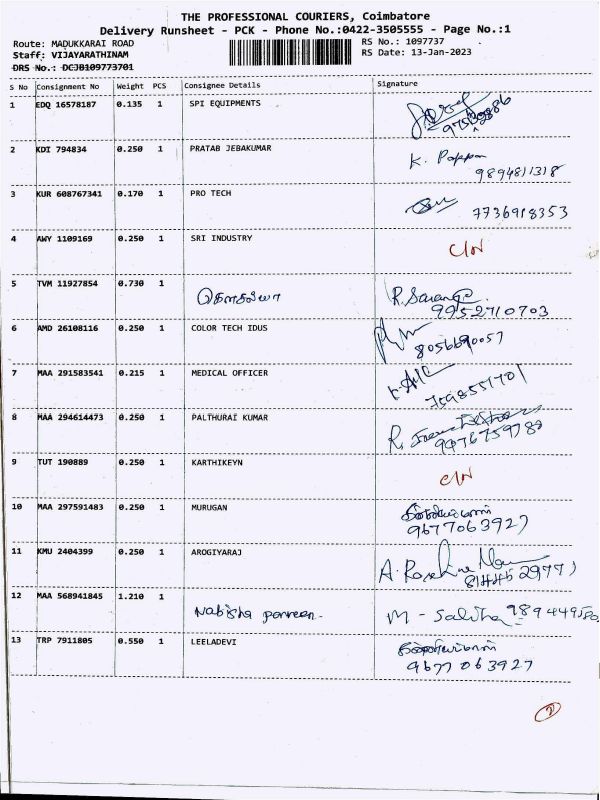 THE PROFESSIONAL COURIERS, Coimbatore
Delivery Runsheet - PCK - Phone No.:0422-3505555 - Page No.:1
Route: MADUKKARAI ROAD RS No.: 1097737
Staff: VIJAYARATHINAM RS Date: 13-Jan-2023
DRS No.: DCJB109773701
S No Consignment No Weight PCS Consignee Details Signature
1 EDQ 16578187 0.135 1 SPI EQUIPMENTS
2 KDI 794834 0.250 1 PRATAB JEBAKUMAR K. 9894811318
3 KUR 608767341 0.170 1 PRO TECH 7736918353
4 AWY 1109169 0.250 1 SRI INDUSTRY C/N
5 TVM 11927854 0.730 1 கௌசல்யா R. 9952710703
6 AMD 26108116 0.250 1 COLOR TECH IDUS
7 MAA 291583541 0.215 1 MEDICAL OFFICER
8 MAA 294614473 0.250 1 PALTHURAI KUMAR R.
9 TUT 190889 0.250 1 KARTHIKEYN C/N
10 MAA 297591483 0.250 1 MURUGAN 9677063927
11 KMU 2404399 0.250 1 AROGIYARAJ A.
12 MAA 568941845 1.210 1 Nabisha parveen. M - Saliha
13 TRP 7911805 0.550 1 LEELADEVI 9677063927
2